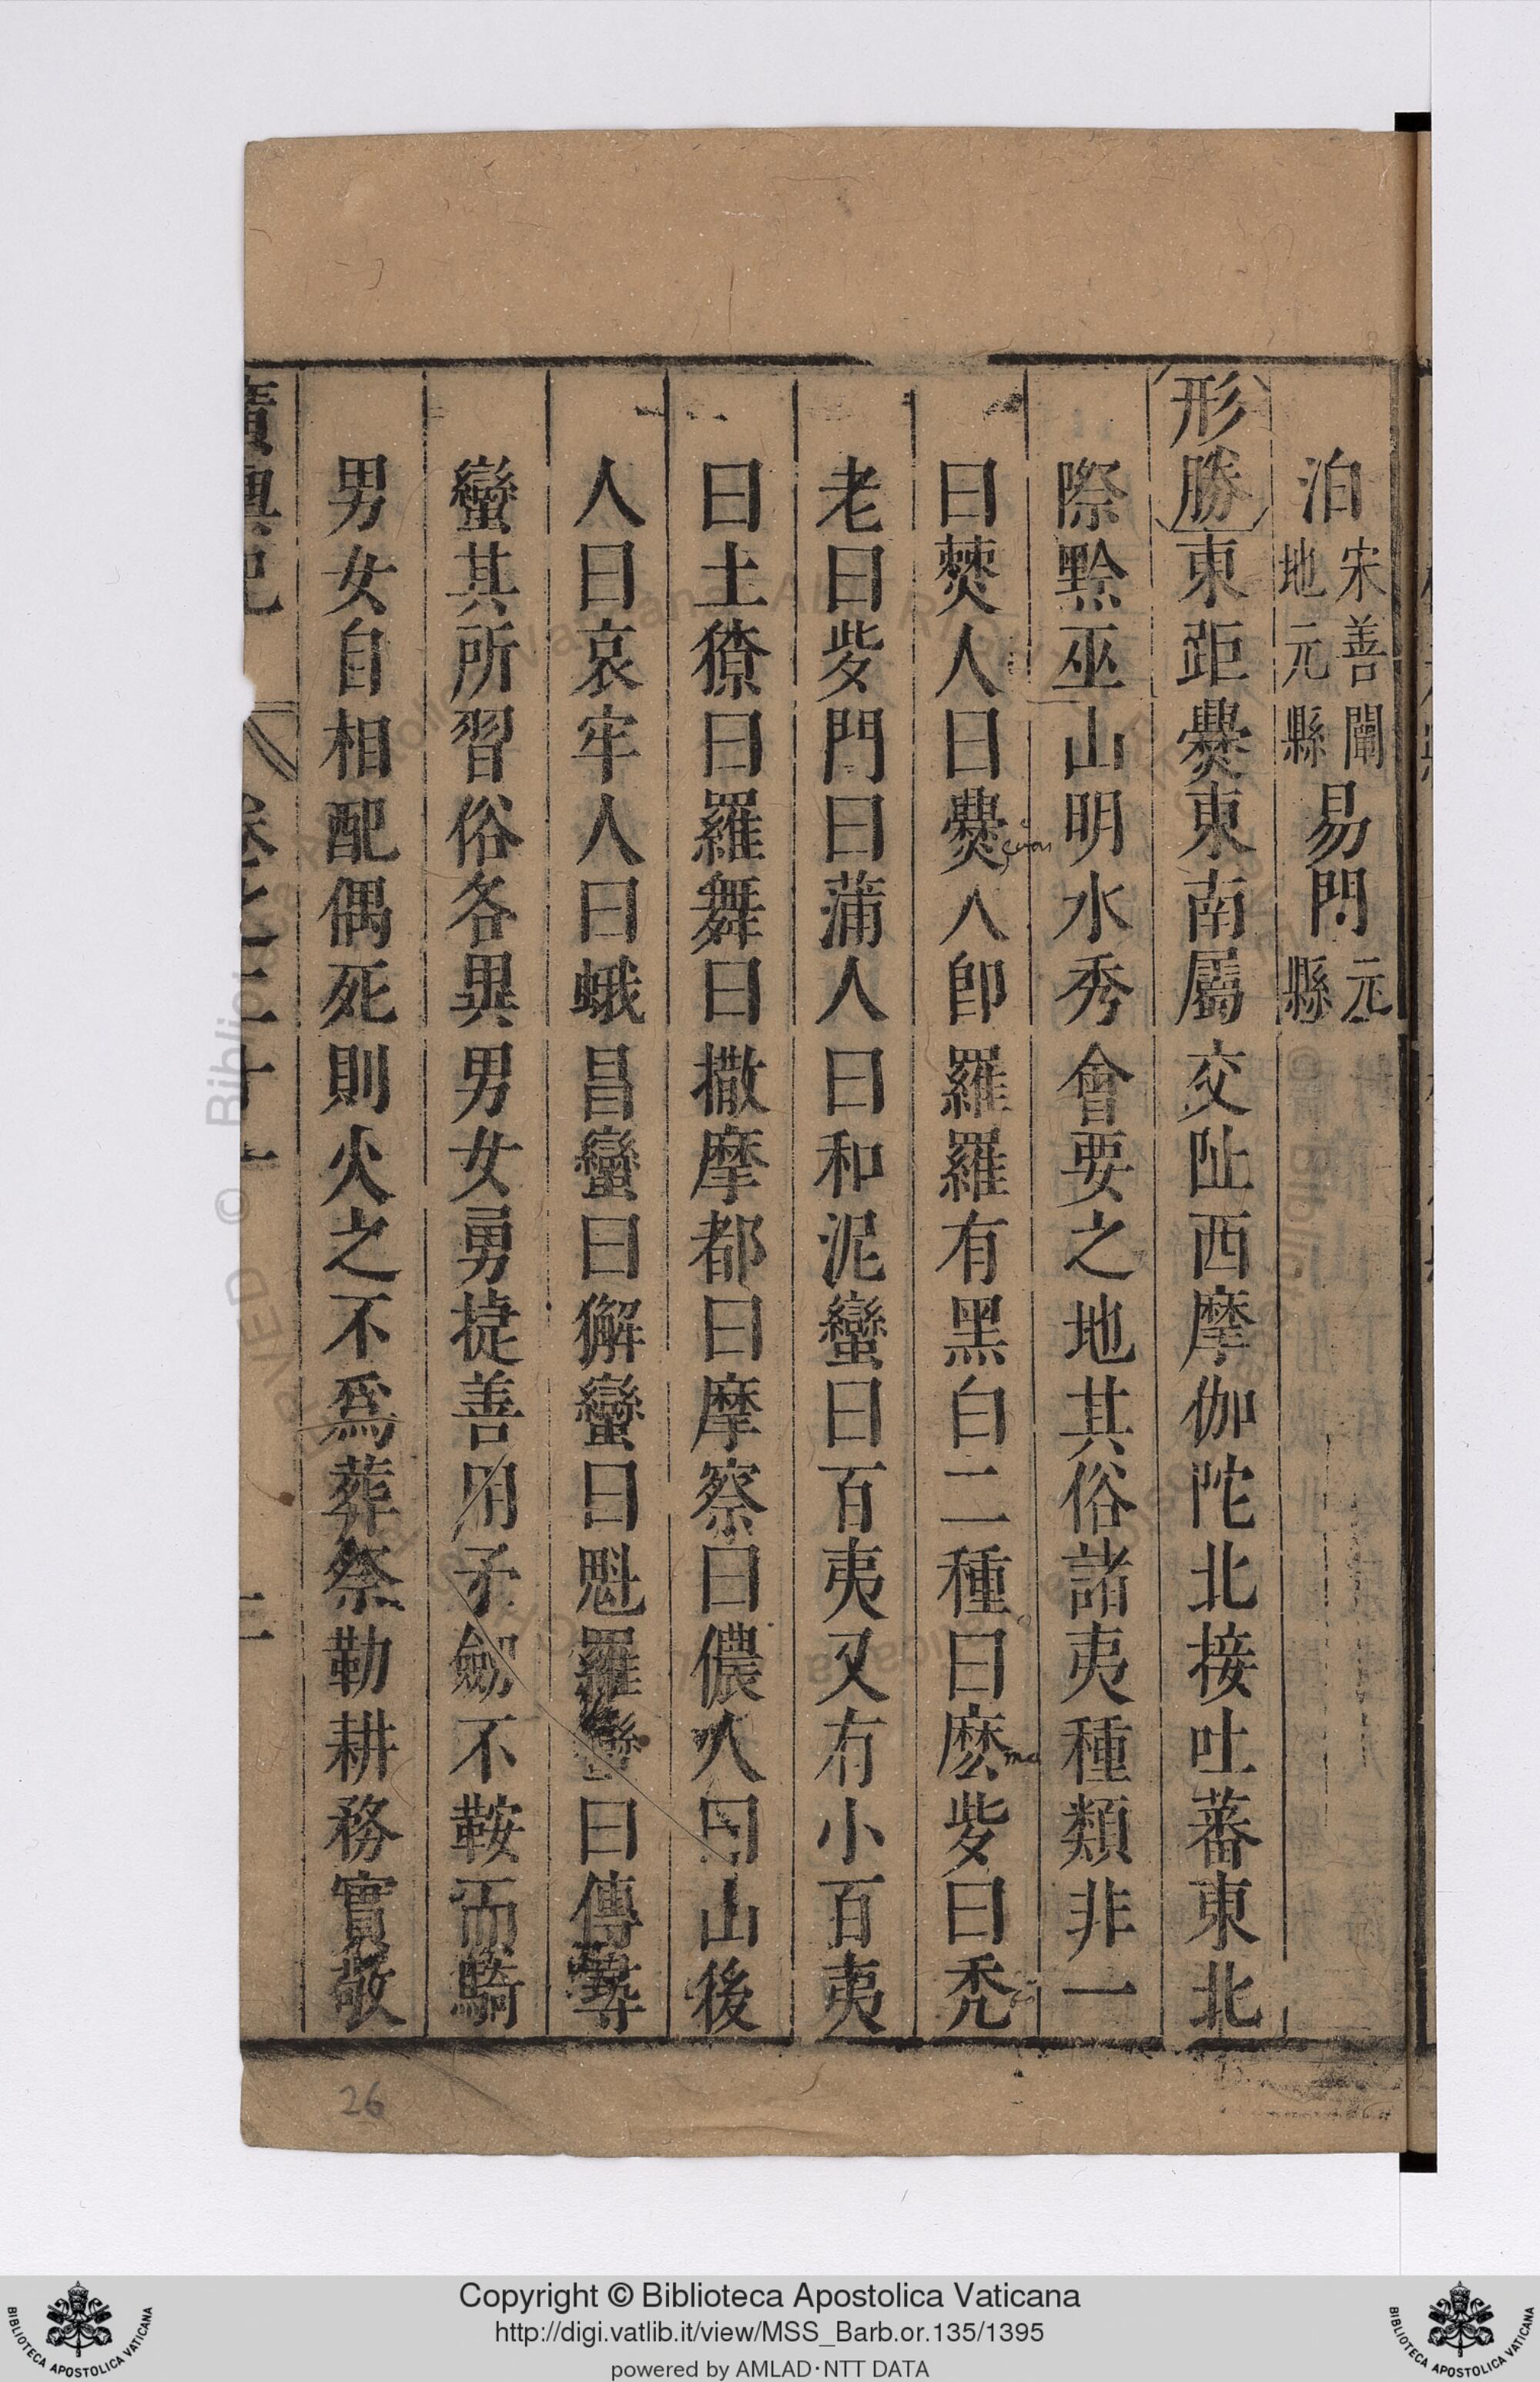 泊宋善闡地元縣易門元縣
形勝東距爨東南屬交阯西摩伽陀北接吐蕃東北
際黔巫山明水秀會要之地其俗諸夷種類非一
曰僰人曰爨人卽羅羅有黑白二種曰麽㱔曰禿
老曰㱔門曰蒲人曰和泥蠻曰百夷又有小百夷
曰土獠曰羅舞曰撒摩都曰摩察曰儂人曰山後
人曰哀牢人曰蛾昌蠻曰獬蠻曰魁羅蠻曰傳尋
蠻其所習俗各異男女勇捷善用矛劒不鞍而騎
男女自相配偶死則火之不爲葬祭勒耕務實敬
廣輿記 卷之二十一 三
ma
26
Copyright © Biblioteca Apostolica Vaticana
http://digi.vatlib.it/view/MSS_Barb.or.135/1395
powered by AMLAD·NTT DATA
BIBLIOTECA APOSTOLICA VATICANA
BIBLIOTECA APOSTOLICA VATICANA